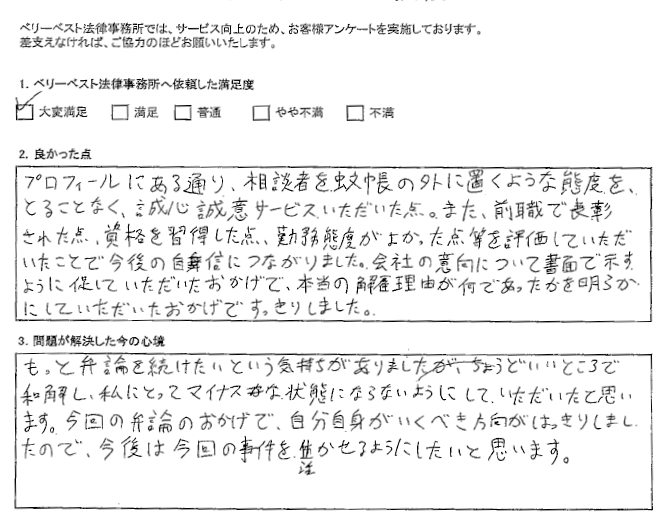 ベリーベスト法律事務所では、サービス向上のため、お客様アンケートを実施しております。
差支えなければ、ご協力のほどお願いいたします。
1. ベリーベスト法律事務所へ依頼した満足度
大変満足 満足 普通 やや不満 不満
2. 良かった点
プロフィールにある通り、相談者を蚊帳の外に置くような態度を、
とることなく、誠心誠意サービスいただいた点。また、前職で表彰
された点、資格を習得した点、勤務態度がよかった点等を評価していただ
いたことで今後の自信につながりました。会社の意向について書面で示す
ように促していただいたおかげで、本当の解雇理由が何であったかを明らか
にしていただいたおかげですっきりしました。
3. 問題が解決した今の心境
もっと弁論を続けたいという気持ちがありましたが、ちょうどいいところで
和解し、私にとってマイナスな状態にならないようにして、いただいたと思い
ます。今回の弁論のおかげで、自分自身がいくべき方向がはっきりしまし
たので、今後は今回の事件を活かせるようにしたいと思います。